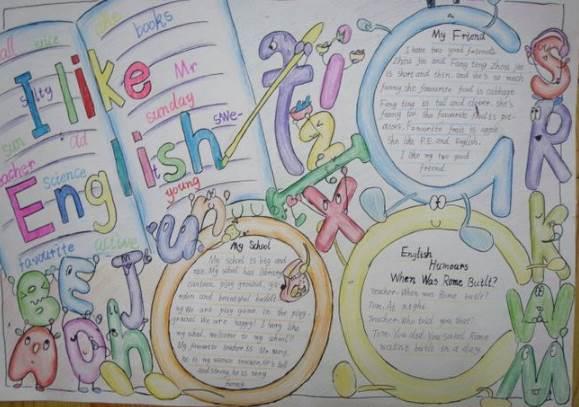 all
nice
she
books
I like
salty
Mr
sunday
sun
ad
swe-
teacher
science
it
English
young
favourite
active
My Friend
I have two good friends.
Zhou Jie and Fang ting Zhou Jie
is short and thin. and she's so much
funny she favourite food is cabbage
Fang ting is tall and clever. she's
funny too. She favourite
Favourite food is apple
She like P.E. and English.
I like my two good
friend.
My School
My school is big and
nice. My school has library
canteen, play ground, ga-
rden and beautiful buildi-
ng We are play game in the play-
ground. We are happy! I very like
my school. welcome to my school!!
My favourite teacher is Mr Wang.
he is my science teacher. He's tall
and strong. he is very
funny.
English
Humours
When Was Rome Built?
Teacher: When was Rome built?
Tim: At night.
Teacher: Who told you that?
Tim: You did. You said Rome
wasn't built in a day.